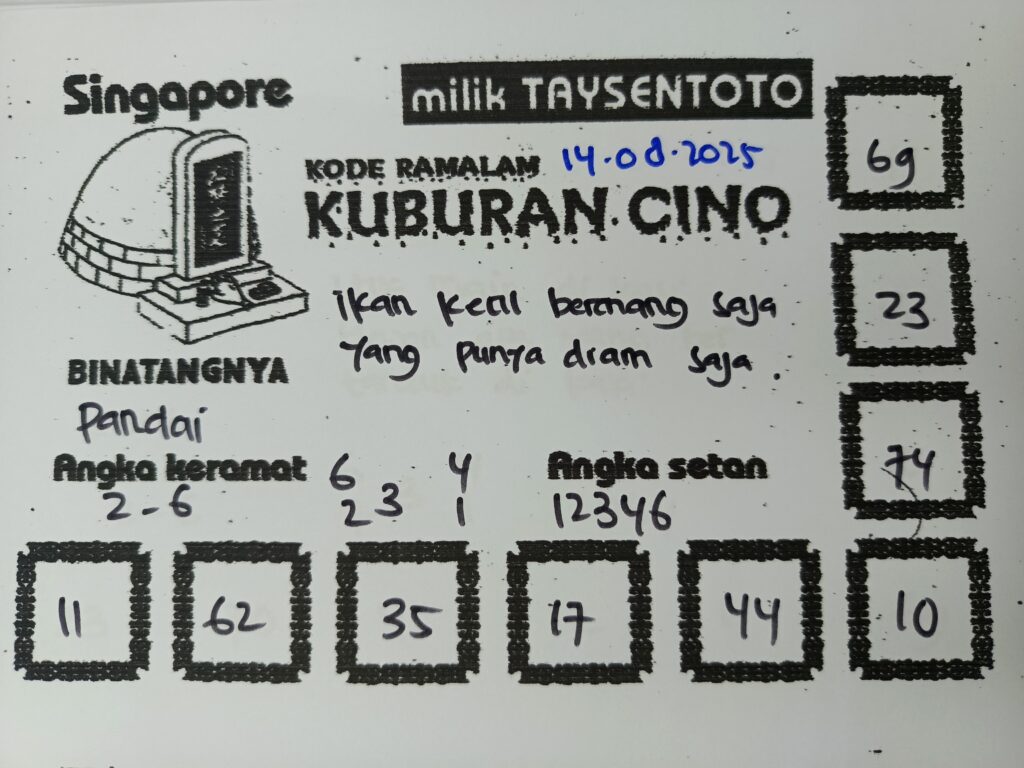 Singapore
milik TAYSENTOTO
KODE RAMALAM 14.08.2025
KUBURAN CINO
ikan kecil bernang saja
yang punya dram saja.
BINATANGNYA
Pandai
Angka keramat
2-6
6 4
2 3 1
Angka setan
12346
69
23
74
11 62 35 17 44 10